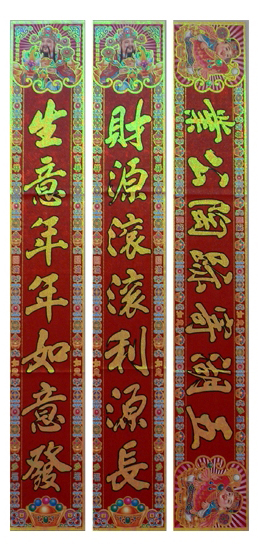 五湖寄跡陶公業
財源滾滾利源長
生意年年如意發